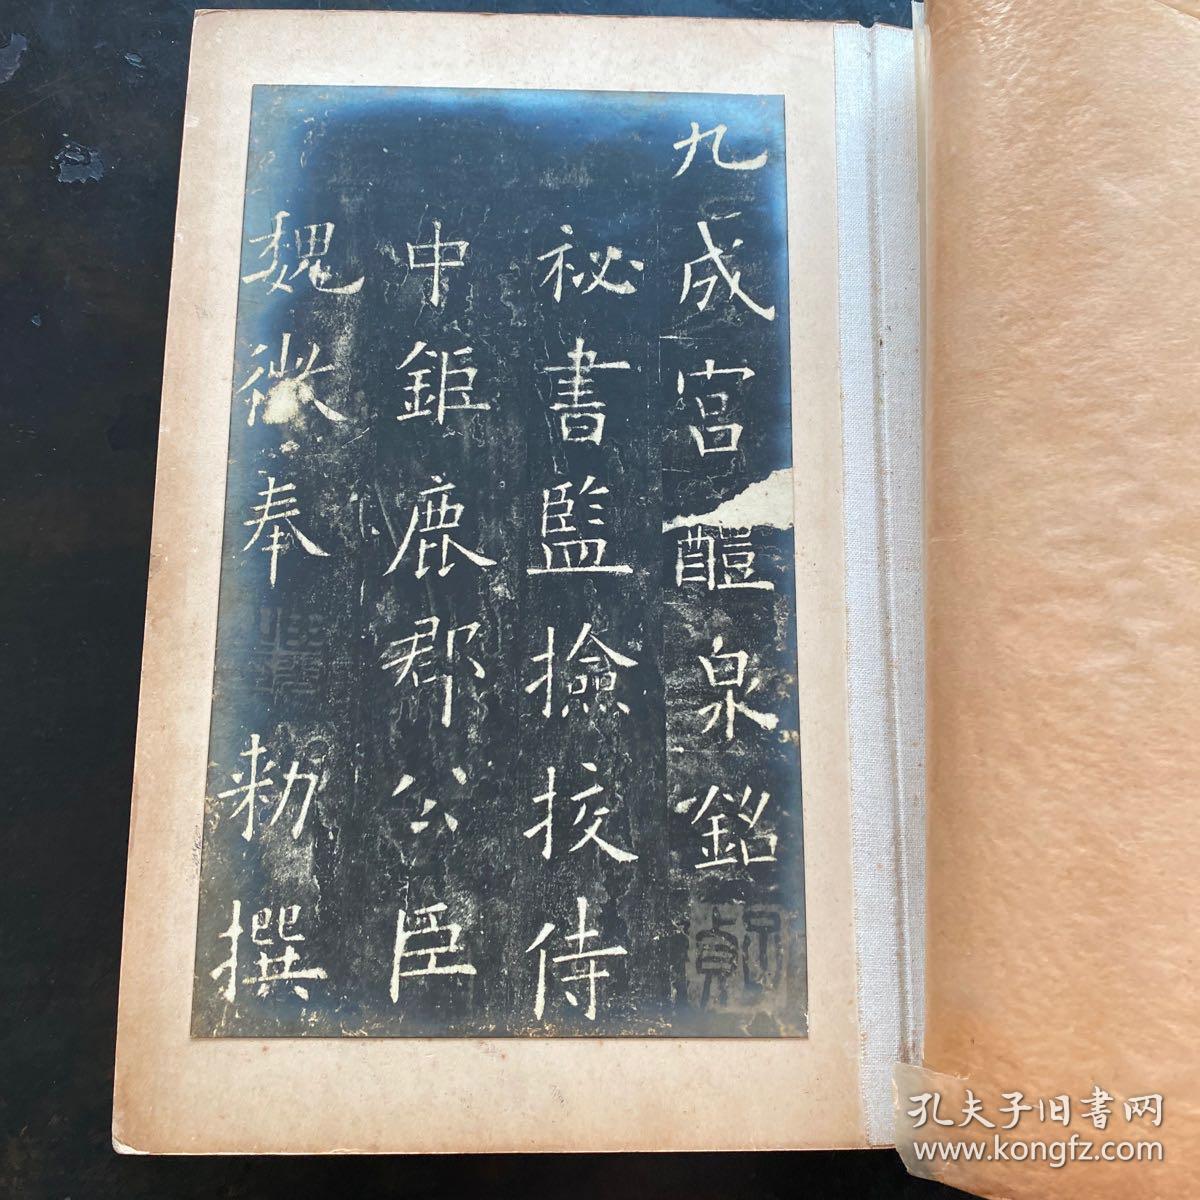 九成宮醴泉銘
祕書監撿挍侍
中鉅鹿郡公臣
魏徵奉 勑撰
孔夫子旧书网
www.kongfz.com